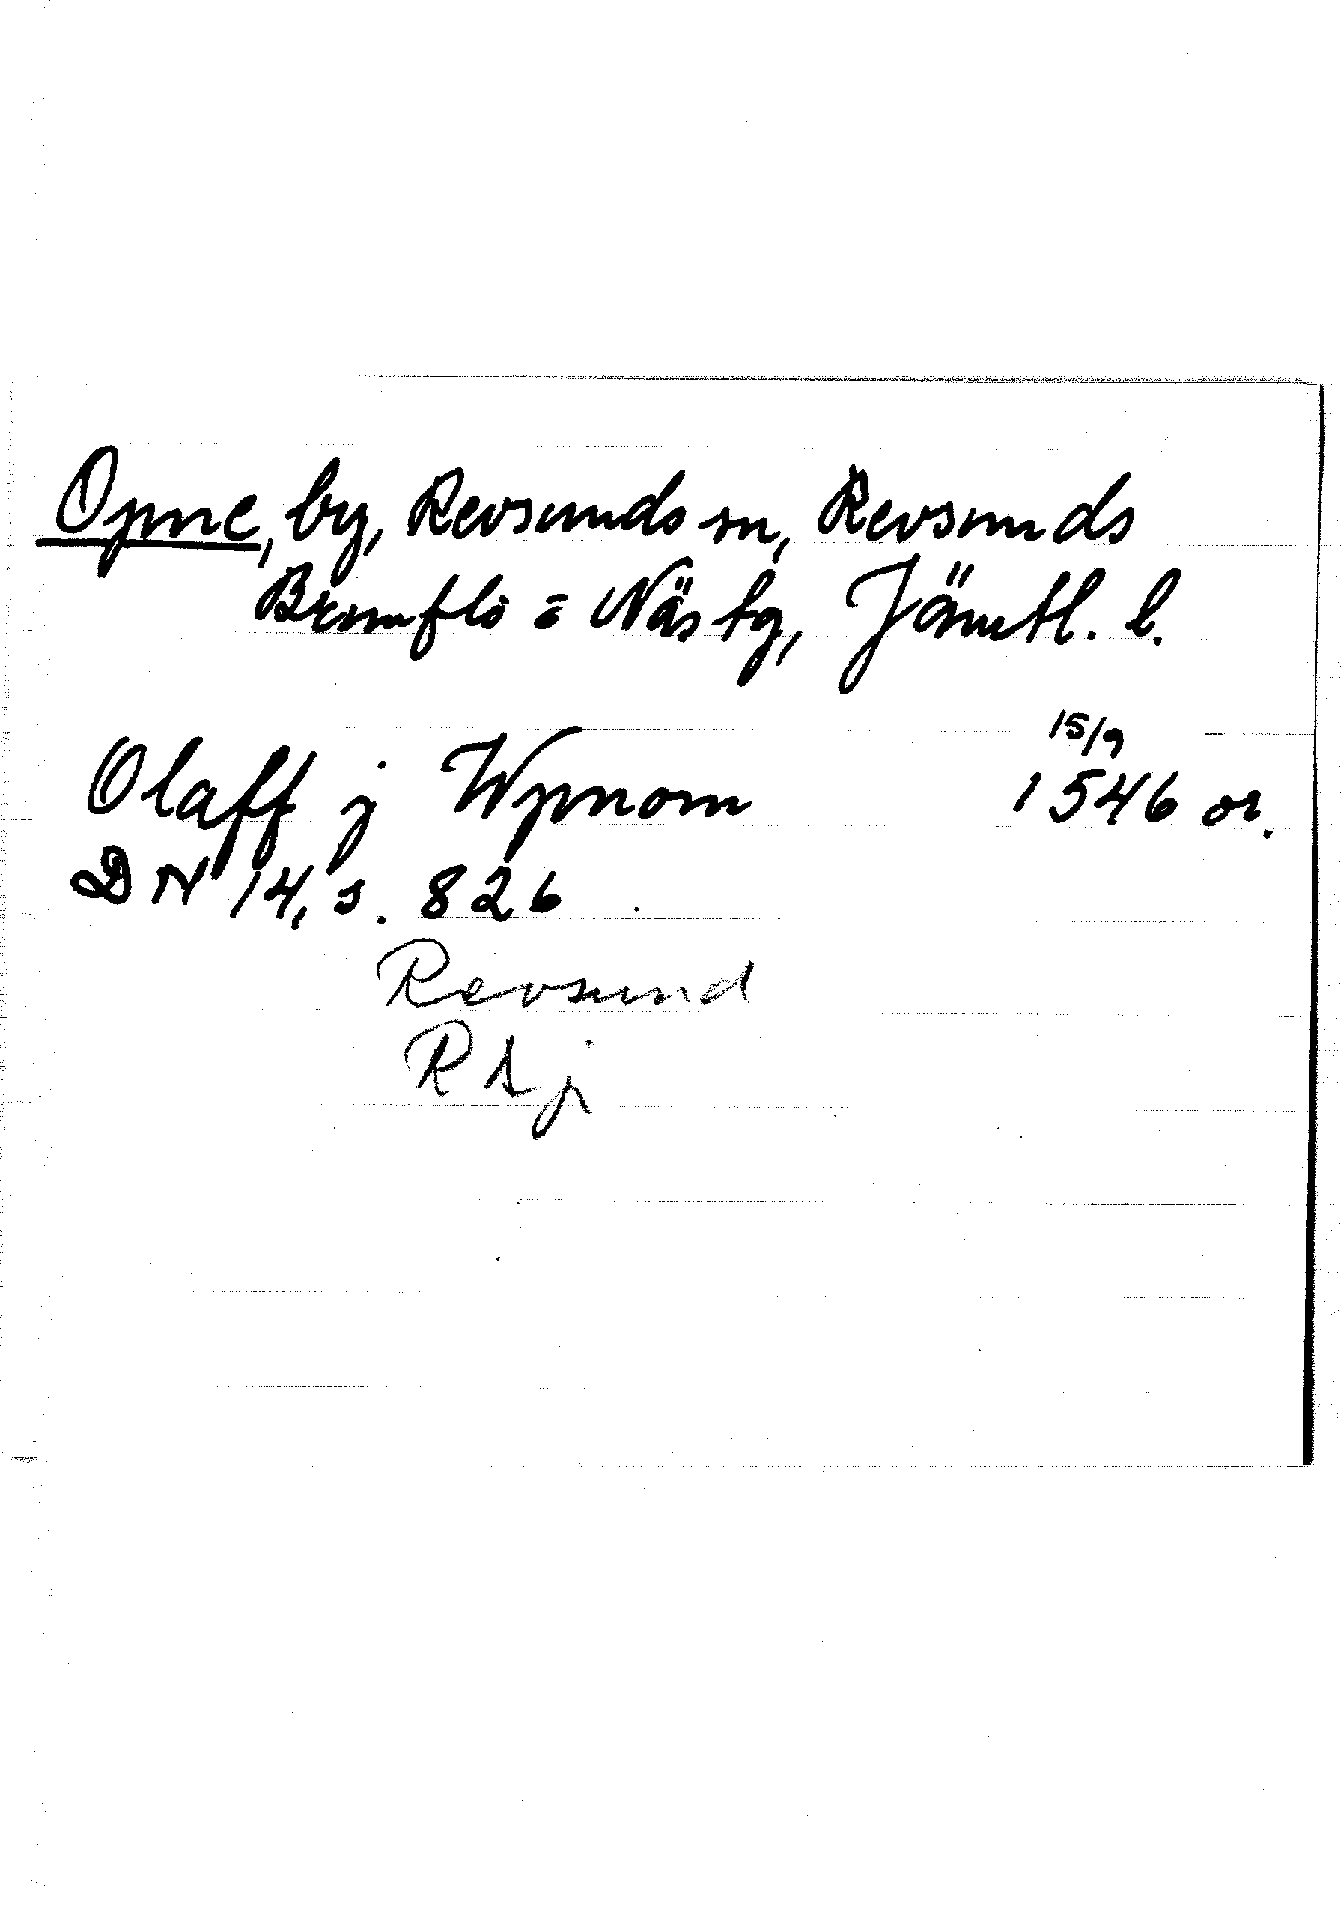 Opne, by, Revsunds sn, Revsunds
Brunflo o Näs tg, Jämtl. l.
15/9
Olaff j Wpnom 1546 or.
DN 14, s. 826
Revsund
RAj